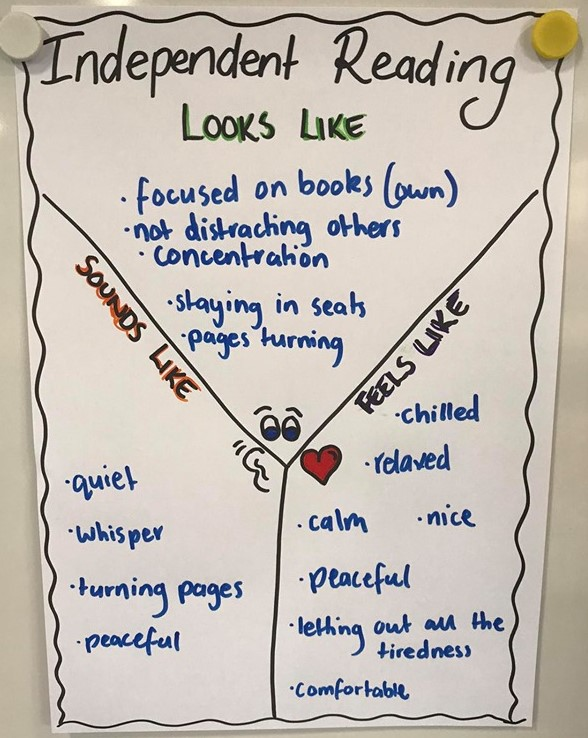 Independent Reading
LOOKS LIKE
• focused on books (own)
• not distracting others
• concentration
• staying in seats
• pages turning
SOUNDS LIKE
• quiet
• whisper
• turning pages
• peaceful
FEELS LIKE
• chilled
• relaxed
• calm • nice
• peaceful
• letting out all the
tiredness
• comfortable